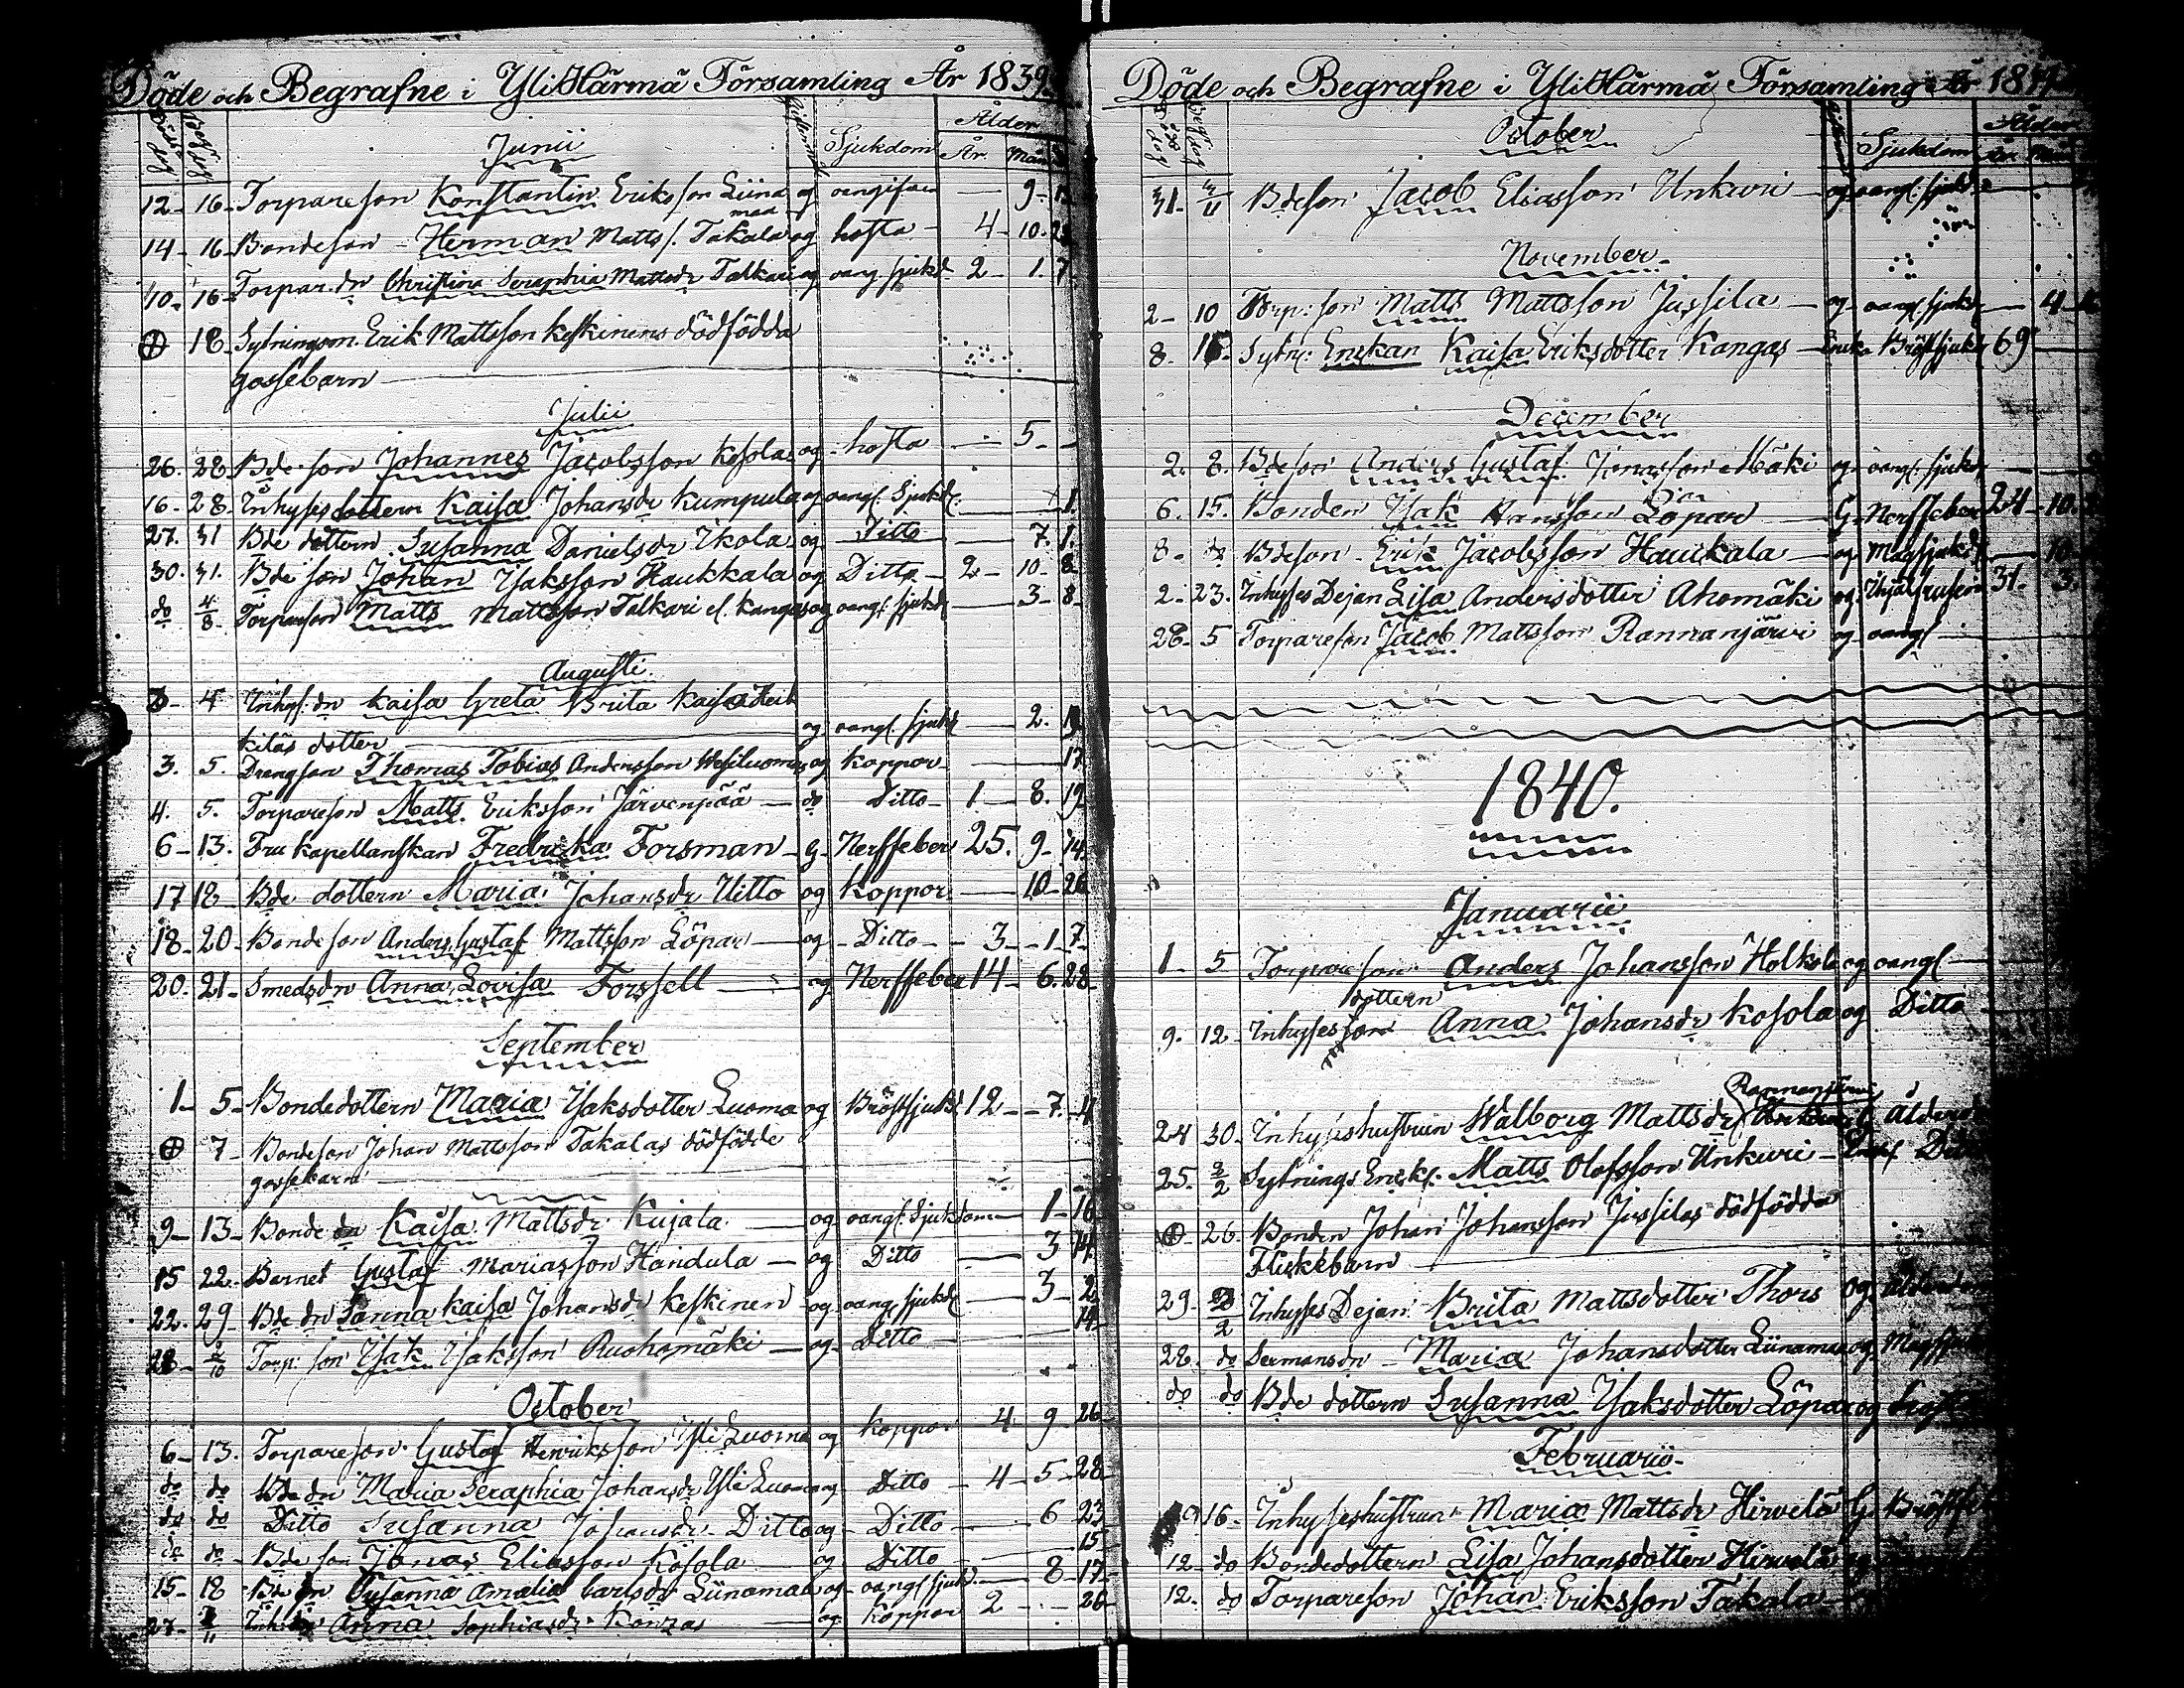 Döde och Begrafne i YliHärmä Församling År 1839
Döds dag Begr. dag Sjukdom Ålder
År Mån
Junii
12 - 16 - Torpareson Konstantin Eriksson Liina og oangifven — 9 -
maa
14 - 16 - Bondeson - Herman Matts s. Takala og hosta - 4 - 10 - 23
10 - 16 - Torpar. dn Christina Seraphia Mattsdr Talkari og oang. sjukd 2 - 1. 7
⊕ 18 - Sytningsm. Erik Mattsson Keskinens dödfödda
gossebarn —
Julii
26. 28 Bde. son Johannes Jacobsson Kosola og - hosta — 5 -
16 - 28 - Inhyses dottern Kaisa Johansdr Kumpula og oangf. Sjukd. — 1.
27. 31 Bde dottern Susanna Danielsdr Ikola og Ditto — 7. 1.
30. 31. Bde son Johan Isaksson Haukkala og Ditto - 2 - 10 - 8
do 4/8 - Torpareson Matts Mattsson Talkari el. Kangas og oangf. sjukd — 3 - 8
Augusti
3 - 4 Inhys. dn Kaisa Greta Brita Kaisa Heik
kiläs dotter — og oangf. sjukd — 2. 19
3. 5. Drengson Thomas Tobias Andersson Wesiluoma og Koppor — 17
4. 5. Torpareson Matts Eriksson Järvenpää — do Ditto - 1 — 8. 19
6 - 13. Fru Kapellanskan Fredricka Forsman - G - Nerffeber 25. 9 - 14.
17 18 - Bde dottern Maria Johansdr Uitto og Koppor — 10 - 26
18 - 20 - Bondeson Anders Gustaf Mattsson Löpar — og - Ditto - 3 - 1 - 7
20. 21 - Smedsdn Anna Lovisa Forssell — og - Nerffeber 14 - 6. 28
September
1 - 5 - Bondedottern Maria Isaksdotter Luoma og Bröstsjukd. 12 - 7. 4
⊕ 7 - Bondeson Johan Mattsson Takalas dödfödde
gossebarn —
9 - 13 - Bonde dn Kaisa Mattsdr Kujala — og oangf. Sjukdom — 1 - 16
15 22 - Barnet Gustaf Mariasson Handula — og Ditto — 3 14.
22. 29 - Bde dn Sanna Kaisa Johansdr Keskinen - og - oangf sjukd — 3 - 2
28 - 2/10 Torp: son Isak Isaksson Ruohomäki — og - Ditto — 14
October
6 - 13. Torpareson Gustaf Henriksson YliLuoma og Koppor 4 9 26
do do Bde dn Maria Seraphia Johansdr YliLuoma og Ditto - 4 - 5 - 28
do do Ditto Susanna Johansdr Ditto og - Ditto — 6 23
do do - Bde son Jonas Eliasson Kosola og Ditto — 15
15 - 18 - Bde dn Susanna Amalia Carlsdr Liinamaa og - oangf sjukd. — 8 - 17
27 - /11 Inh: dn Anna Sophiasdr — og Koppor 2 - 26
Döde och Begrafne i YliHärmä Församling År 18
Döds dag Begr. dag Sjukdom Ålder
October
31. /11 Bdeson Jacob Eliasson Unkuri — og - oangf. sjukd
November
2 - 10 Torp: son Matts Mattsson Jussila — og - oangf sjukd — 4
8. 15 - Sytn: Enckan Kaisa Eriksdotter Kangas — Enka Bröstsjukd 69
December
2. 8. Bdeson Anders Gustaf Jonasson Mäki og - oangf. sjukd —
6. 15. Bonden Isak Hansson Löpar — G - Nerffeber 24 - 10.
8 - do - Bdeson - Erik Jacobsson Haukkala — og - Magsjukd — 10.
2 - 23. Inhyses Dejan Lisa Andersdotter Ahomäki og - Ihjälfrusen 31. 3.
28 - 5 Torpareson Jacob Mattsson Rannanjärvi og - oangf —
1840.
Januarii
1 - 5 Torpareson Anders Johansson Holkola og oangf —
dottern
9. 12 - Inhyses son Anna Johansdr Kosola og Ditto
Rannanjärvi
24 30 - Inhyseshustrun Walborg Mattsdr Ålder
25. 2/2 Sytnings Enckl. Matts Olofsson Unkuri — Ditto
⊕ - 26 - Bonden Johan Johansson Jussilas dödfödda
Flickebarn —
29 - /2 Inhyses Dejan Brita Mattsdotter Thors og ålderdom
28 - do Sexmansdn - Maria Johansdotter Liinamaa og Magsjukd
do do Bde dottern Susanna Isaksdotter Löpar og
Februarii
16 - Inhyseshustrun Maria Mattsdr Hirvelä G. Bröstsj
12 - do Bondedottern Lisa Johansdotter Hirvelä og
12. do Torpareson Johan Eriksson Takala